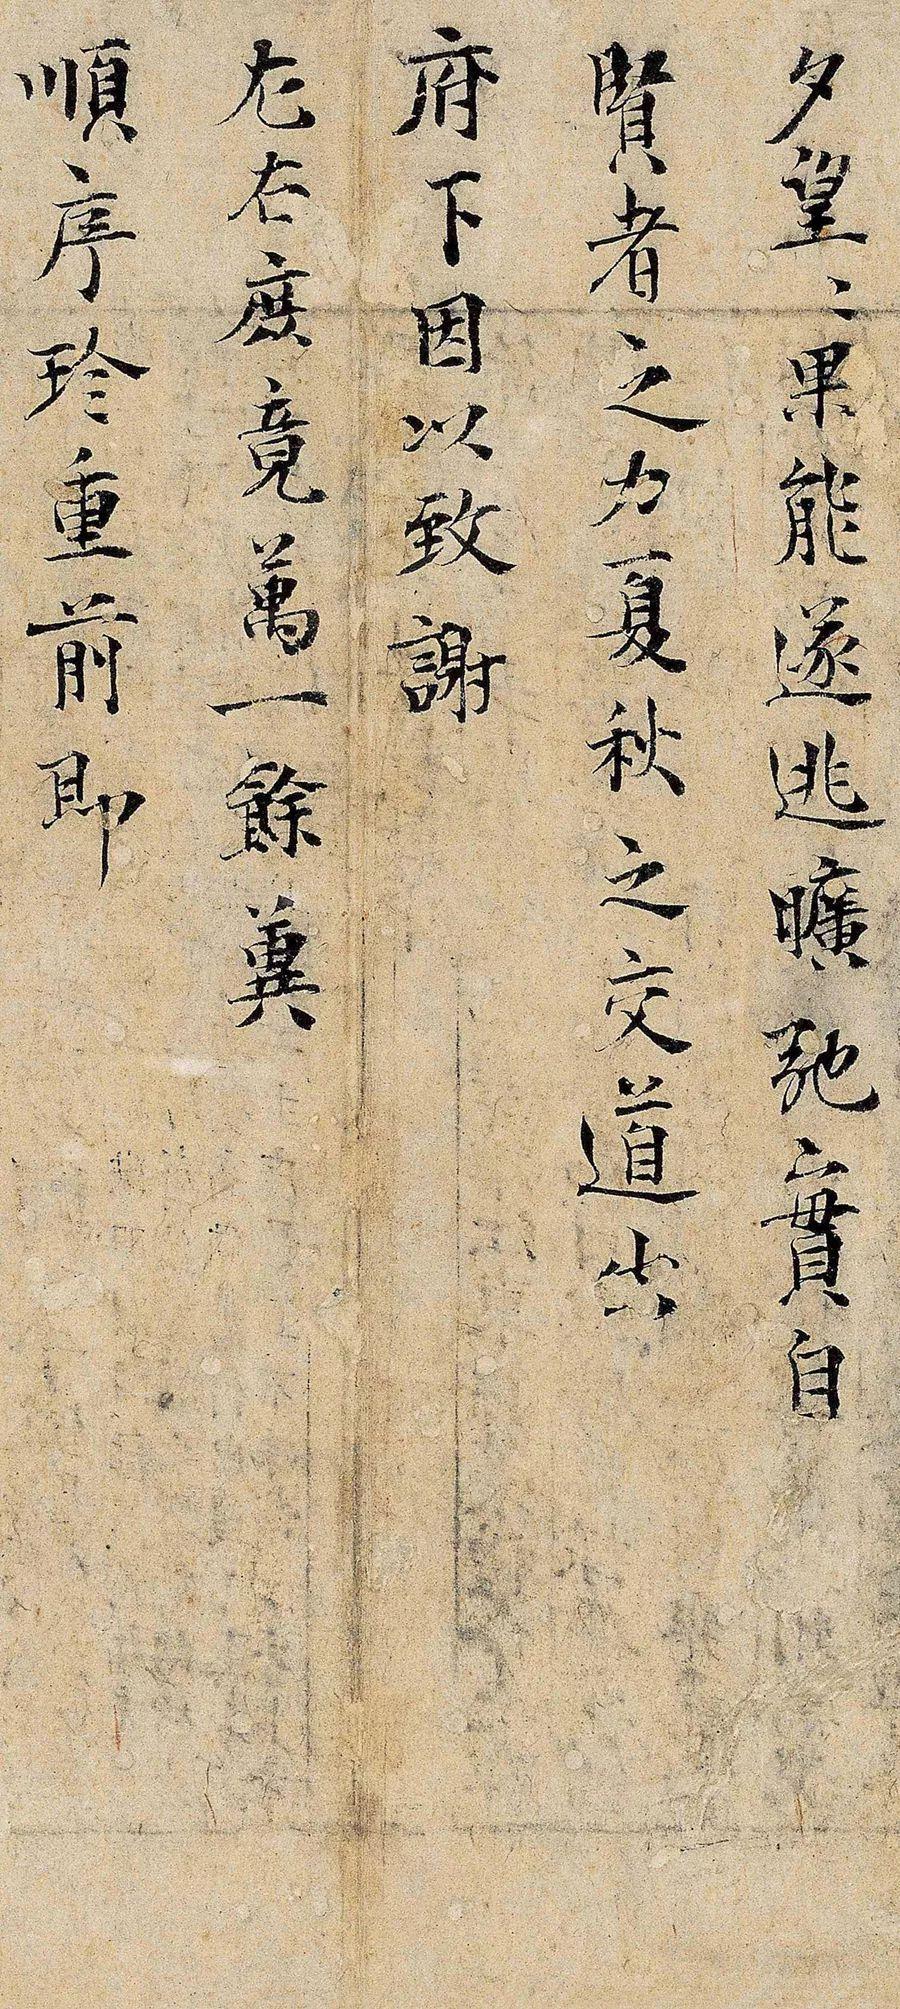 夕望〻果能遂逃曠弛實自
賢者之力夏秋之交道出
府下因以致謝
左右庶竟萬一餘冀
順序珍重前即